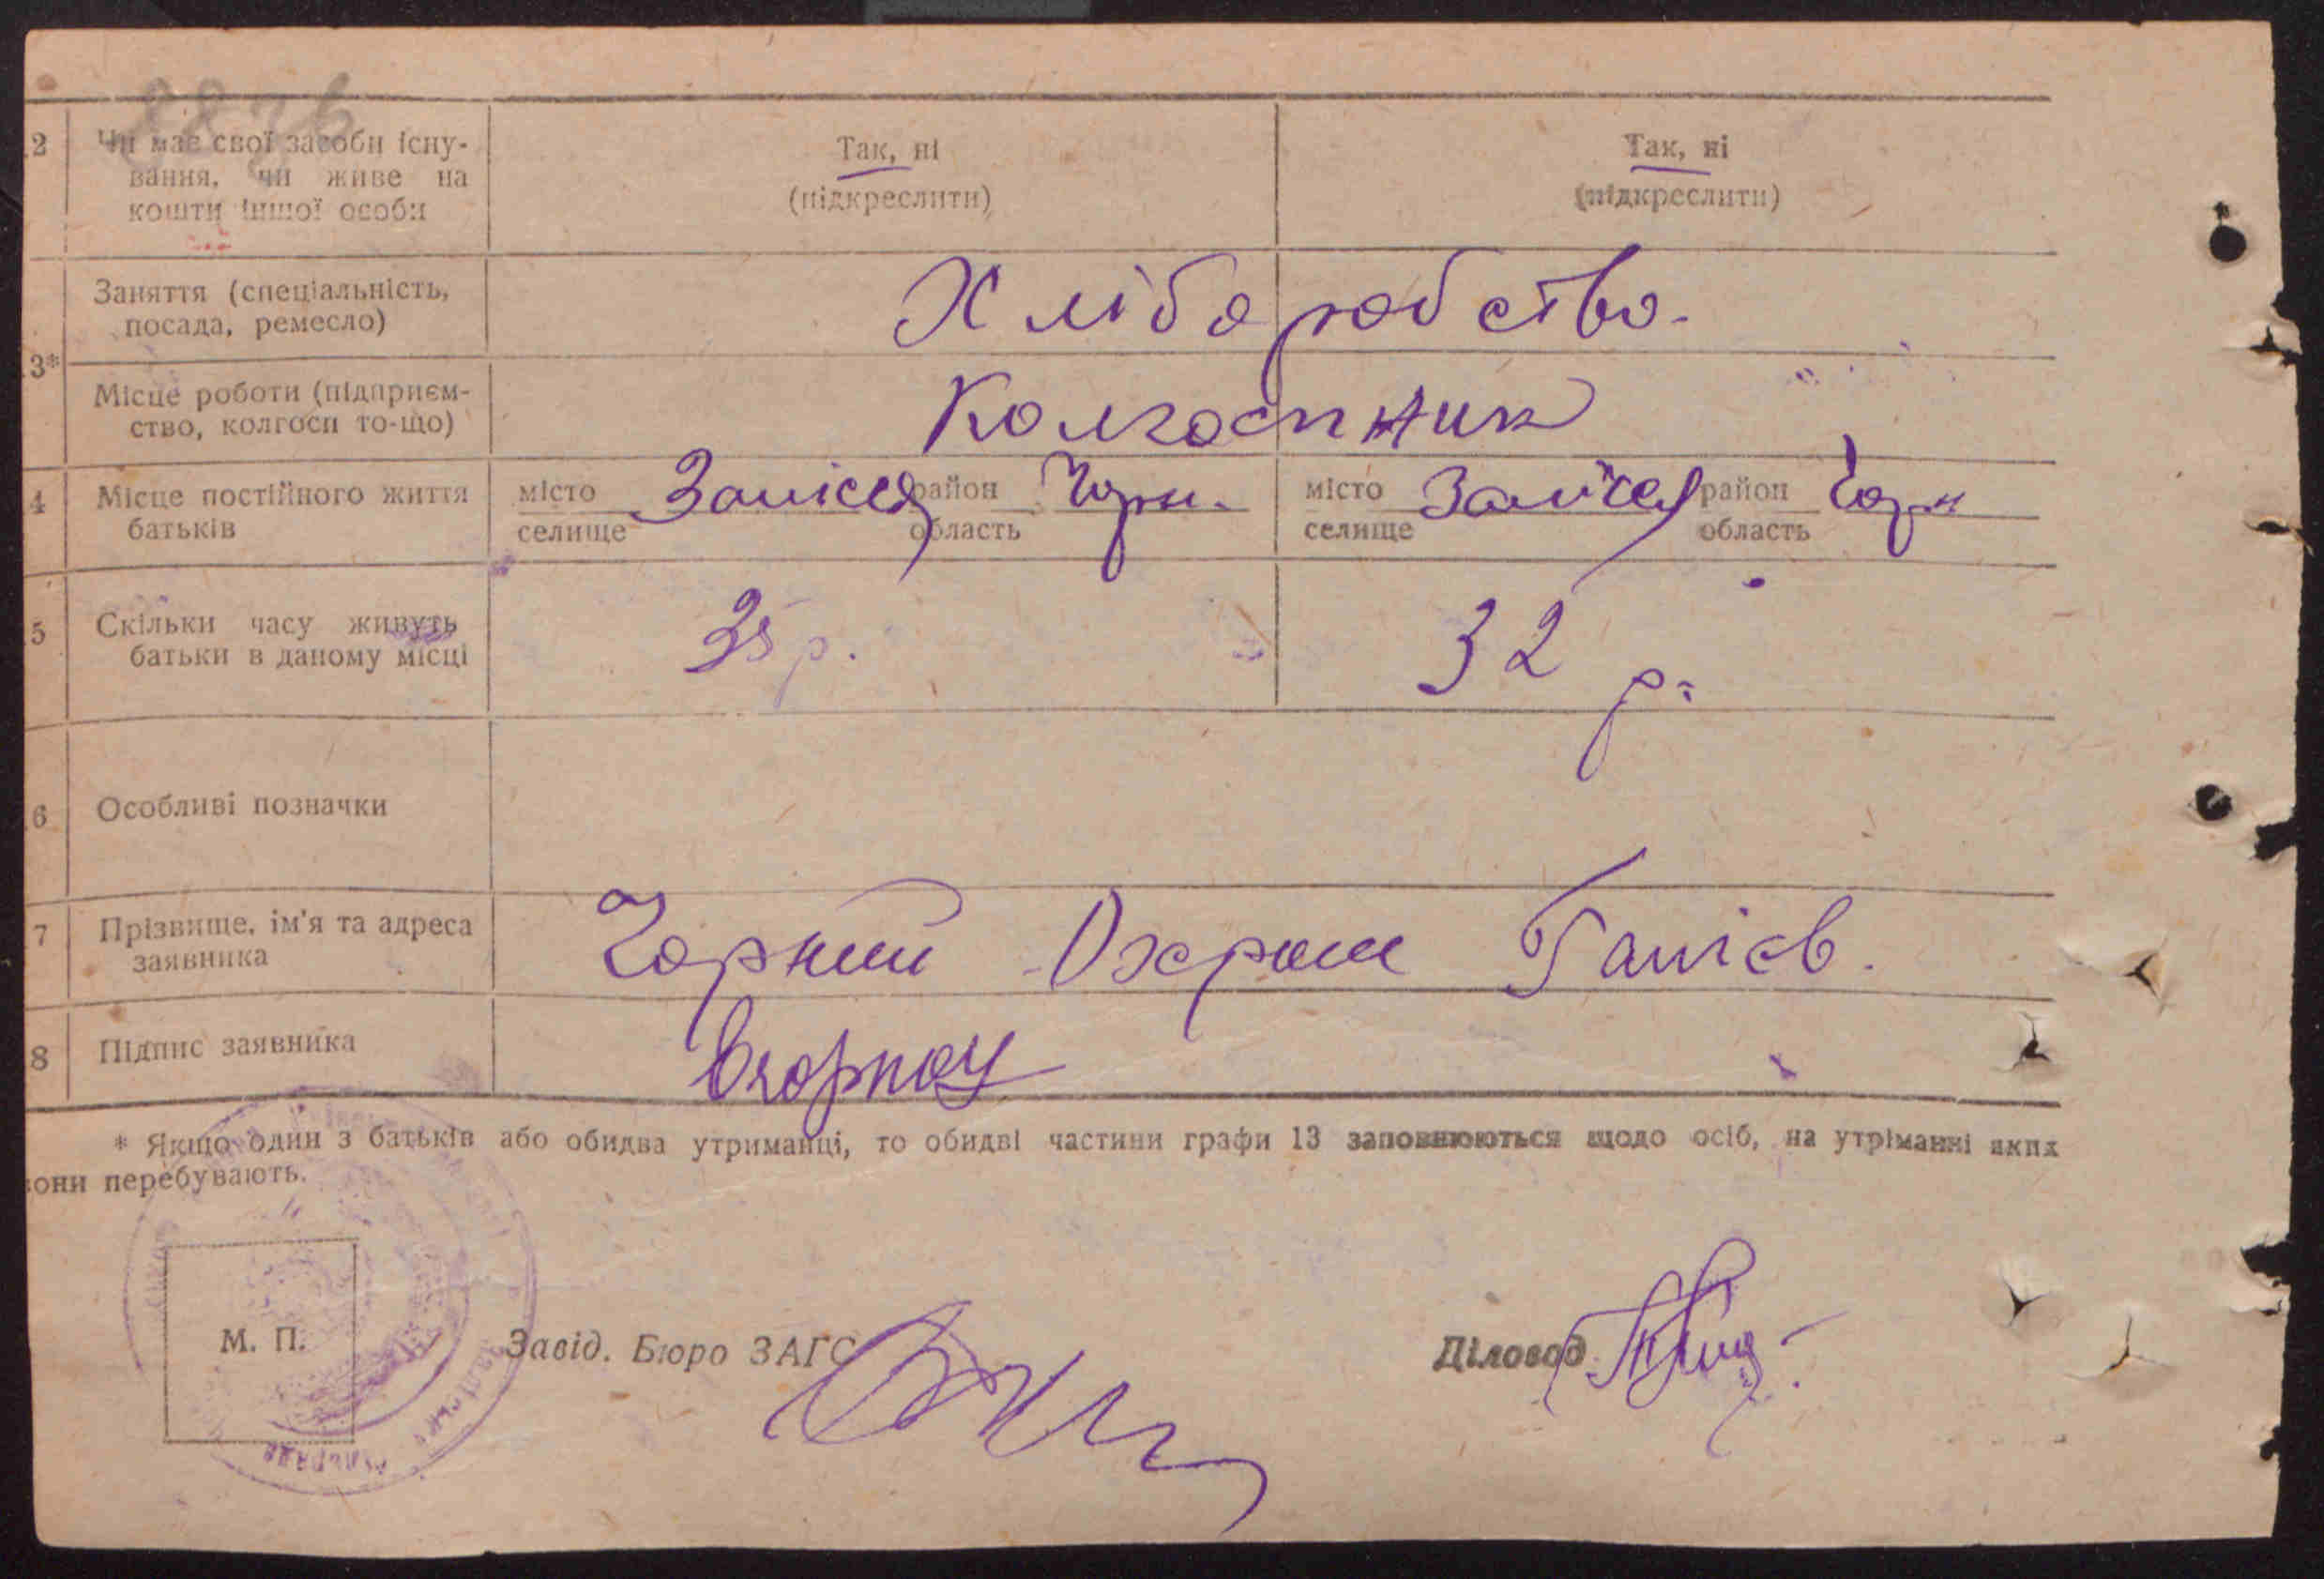 2 Чи має свої засоби існу- Так, ні Так, ні
вання, чи живе на (підкреслити) (підкреслити)
кошти іншої особи
Заняття (спеціальність, Хліборобство.
посада, ремесло)
3*
Місце роботи (підприєм- Колгоспник
ство, колгосп то-що)
4 Місце постійного життя місто Залісся район Чорн. місто Залісся район Чорн
батьків селище область селище область
5 Скільки часу живуть 35 р. 32 р.
батьки в даному місці
6 Особливі позначки
7 Прізвище, ім'я та адреса Чорний Охрим
заявника
8 Підпис заявника
* Якщо один з батьків або обидва утриманці, то обидві частини графи 13 заповнюються щодо осіб, на утріманні яких
вони перебувають.
М. П. Завід. Бюро ЗАГС Діловод